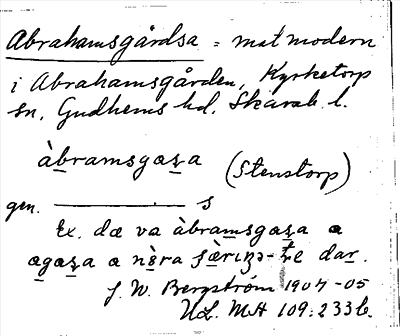 Abrahamsgårdsa = matmodern
i Abrahamsgården, Kyrketorp
sn, Gudhems hd. Skarab. l.
àbramsgaʂa (Stenstorp)
gen. ——— s
Ex. dæ va àbramsgaʂa a
ægaʂa a nɵ̀ra dar.
J. W. Bergström 1904-05
ULMA 109:233 b.